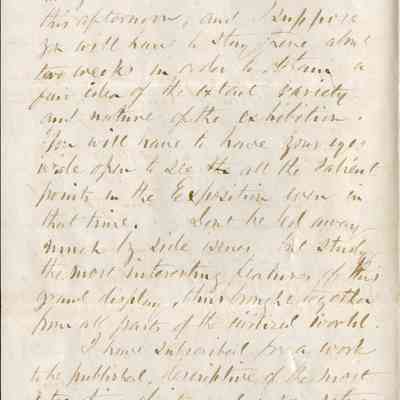 this afternoon, and I suppose
you will have to stay there about
two weeks in order to obtain a
fair idea of the extent variety
and nature of the exhibition.
You will have to have your eyes
wide open to see all the salient
points in the Exposition even in
that time. Dont be led away
much by side issues, but study
the most interesting features of this
grand display, thus brought together
from all parts of the civilized world.
I have subscribed for a work
to be published, descriptive of the most